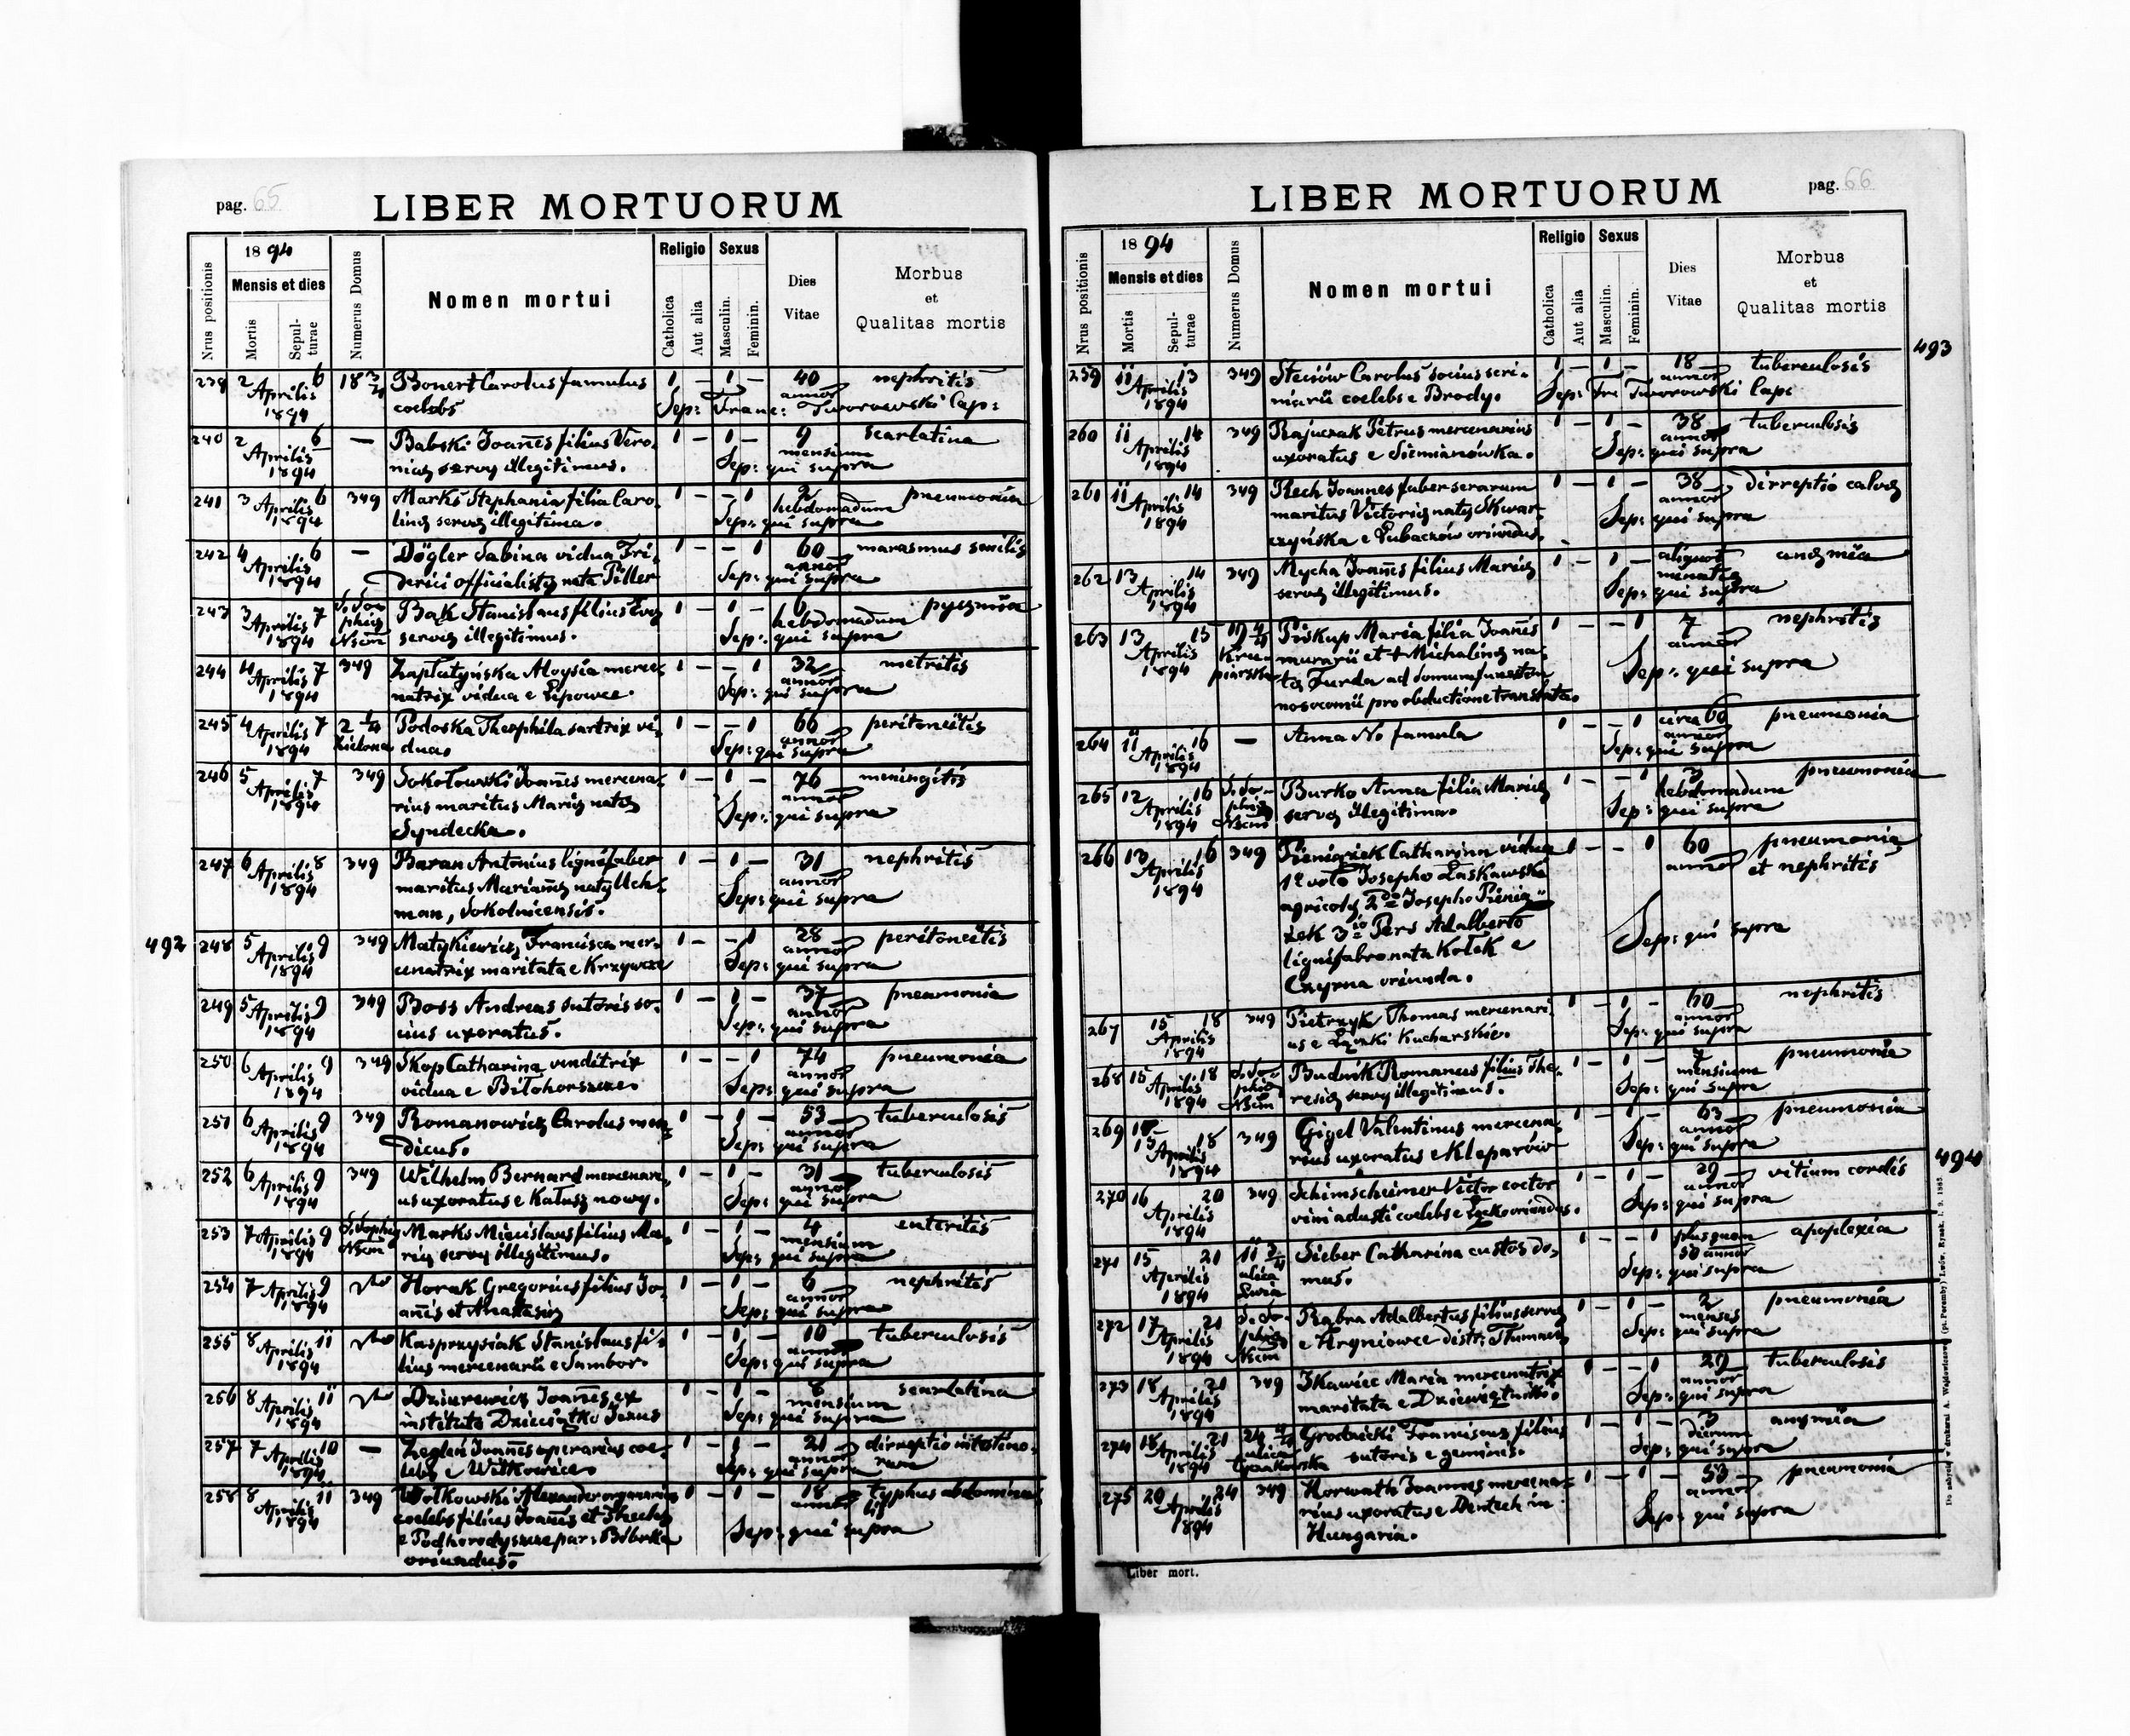 pag. 65
LIBER MORTUORUM
Nrus positionis
18 94
Mensis et dies
Mortis
Sepul-
turae
Numerus Domus
Nomen mortui
Religio
Catholica
Aut alia
Sexus
Masculin.
Feminin.
Dies
Vitae
Morbus
et
Qualitas mortis
239 2 6 18 3/4 Bonert Carolus famulus 1 – 1 – 40 nephritis
Aprilis 1894 coelebs Sep: Franc: Tworowski Cap:
240 2 6 — Babski Joannes filius Vero- 1 – 1 – 9 scarlatina
Aprilis mensium
1894 servae illegitimus. Sep: qui supra
241 3 6 349 Marks Stephania filia Caro- 1 – – 1 2 pneumonia
Aprilis hebdomadum
1894 linae servae illegitima. Sep: qui supra
242 4 6 — Dögler Sabina vidua Fri- 1 – – 1 60 marasmus senilis
Aprilis annor
1894 derici officialistae nata Piller Sep: qui supra
243 3 7 Bak Stanislaus filius Evae 1 – 1 – pyaemia
Aprilis hebdomadum
1894 servae illegitimus. Sep: qui supra
244 4 7 349 Aloysia merce- 1 – – 1 32 metritis
Aprilis annor
1894 natrix vidua e Lipowce. Sep: qui supra
245 4 7 2 1/4 Podoska Theophila sartrix vi- 1 – – 1 66 peritoneitis
Aprilis annor
1894 Zielona dua. Sep: qui supra
246 5 7 349 Sokołowski Joannes mercena- 1 – 1 – 76 meningitis
Aprilis annor
1894 rius maritus Mariae natae Sep: qui supra
Syndecka.
247 6 8 349 Baran Antonius lignifaber 1 – 1 – 31 nephritis
Aprilis annor
1894 maritus Mariannae natae Uch- Sep: qui supra
man, Sokolnicensis.
492
248 5 9 349 Matykiewicz Francisca mer- 1 – – 1 28 peritoneitis
Aprilis annor
1894 cenatrix maritata e Krzywcze Sep: qui supra
249 5 9 349 Boss Andreas sutoris so- 1 – 1 – 37 pneumonia
Aprilis annor
1894 cius uxoratus. Sep: qui supra
250 6 9 349 Skop Catharina venditrix 1 – – 1 74 pneumonia
Aprilis annor
1894 vidua e Biłohorszcze. Sep: qui supra
251 6 9 349 Romanowicz Carolus men- 1 – 1 – 53 tuberculosis
Aprilis annor
1894 dicus. Sep: qui supra
252 6 9 349 Wilhelm Bernard mercenari- 1 – 1 – 31 tuberculosis
Aprilis annor
1894 us uxoratus e Kałusz nowy. Sep: qui supra
253 7 9 Marks Miecislaus filius Ma- 1 – 1 – 4 enteritis
Aprilis mensium
1894 riae servae illegitimus. Sep: qui supra
254 7 9 Horak Gregorius filius Jo- 1 – 1 – 6 nephritis
Aprilis annor
1894 annis et Anastasiae Sep: qui supra
255 8 11 Kasprzysiak Stanislaus fi- 1 – 1 – 10 tuberculosis
Aprilis
1894 lius mercenarii e Sambor. Sep: qui supra
256 8 11 Dziurewicz Joannes ex 1 – 1 – 8 scarlatina
Aprilis mensium
1894 instituto Dzieciątko Jezus Sep: qui supra
257 7 10 — Zegleń Joannes operarius coe- 1 – 1 – 21 dirreptio intestino-
Aprilis annor rum
1894 lebs e Witkowice. Sep: qui supra
258 8 11 349 Wołkowski Alexander 1 – 1 – 18 typhus abdomina-
Aprilis lis
1894 coelebs filius Joannis et Theclae
e Podhorodyszcze par: Bóbrka Sep: qui supra
oriundus.
pag. 66
LIBER MORTUORUM
Nrus positionis
18 94
Mensis et dies
Mortis
Sepul-
turae
Numerus Domus
Nomen mortui
Religio
Catholica
Aut alia
Sexus
Masculin.
Feminin.
Dies
Vitae
Morbus
et
Qualitas mortis
493
259 11 13 349 Steciów Carolus socius scri- 1 – 1 – 18 tuberculosis
Aprilis annor
1894 niarii coelebs e Brody. Sep: Fr Tworowski Cap:
260 11 14 349 Rajuczak Petrus mercenarius 1 – 1 – 38 tuberculosis
Aprilis annor
1894 uxoratus e Siemianówka. Sep: qui supra
261 11 14 349 Rech Joannes faber serarum 1 – 1 – 38 dirreptio calvae
Aprilis annor
1894 maritus Victoriae natae Skwar- Sep: qui supra
czyńska e Lubaczów oriundus.
262 13 14 349 Mycha Joannes filius Mariae 1 – 1 – aliquot anaemia
Aprilis
1894 servae illegitimus. Sep: qui supra
263 13 15 19 4/4 Piskup Maria filia Joannis 1 – – 1 7 nephritis
Aprilis annor
1894 murarii et + Michalinae na- Sep: qui supra
tae Furda ad domum
nosocomii pro obductione translata.
264 11 16 — Anna No famula 1 – – 1 circa 60 pneumonia
Aprilis annor
1894 Sep: qui supra
265 12 16 Burko Anna filia Mariae 1 – – 1 3 pneumonia
Aprilis hebdomadum
1894 servae illegitima. Sep: qui supra
266 13 16 349 Pieniążek Catharina vidua 1 – – 1 60 pneumonia
Aprilis annor et nephritis
1894 1o voto Josepho Laskawski
agricolae 2do Josepho Pienią-
żek 3io Pers Adalberto Sep: qui supra
lignifabro nata Kołek e
Czyrna oriunda.
267 15 18 349 Pietrzyk Thomas mercenari- 1 – 1 – 60 nephritis
Aprilis annor
1894 us e Kucharskie. Sep: qui supra
268 15 18 Budnik Romanus filius The- 1 – 1 – 7 pneumonia
Aprilis mensium
1894 resiae servae illegitimus. Sep: qui supra
269 15 18 349 Gigel Valentinus mercena- 1 – 1 – 63 pneumonia
Aprilis annor
1894 rius uxoratus e Kleparów Sep: qui supra
494
270 16 20 349 Schimscheimer Victor coctor 1 – 1 – 29 vitium cordis
Aprilis annor
1894 vini adusti coelebs e oriundus. Sep: qui supra
271 15 21 11 3/4 Sieber Catharina custos do- 1 – – 1 plus quam apoplexia
Aprilis ulica 50 annor
1894 mus. Sep: qui supra
272 17 21 Rabra Adalbertus filius servae 1 – 1 – 2 pneumonia
Aprilis menses
1894 e Hryniowce distr: Tłumacz Sep: qui supra
273 18 21 349 Skawiec Maria mercenatrix 1 – – 1 29 tuberculosis
Aprilis annor
1894 maritata e Dziewiętniki. Sep: qui supra
274 18 21 24 Grodzicki Franciscus filius 1 – 1 – 3 anaemia
Aprilis ulica dierum
1894 sutoris e geminis. Sep: qui supra
275 20 24 349 Horwath Joannes mercena- 1 – 1 – 53 pneumonia
Aprilis annor
1894 rius uxoratus e in Sep: qui supra
Hungaria.
Liber mort.